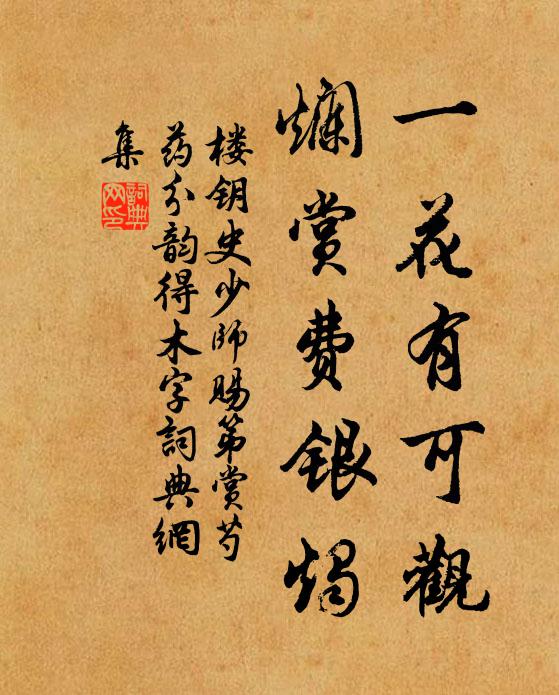 一花有可觀
爛賞費銀燭
楼钥史少師賜第賞芍
药分韵得木字詞典網
集
詞典
网印